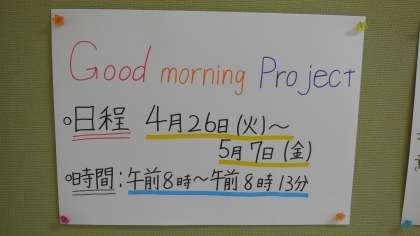 Good morning Project
○日程 4月26日(火)〜
5月7日(金)
○時間:午前8時〜午前8時13分